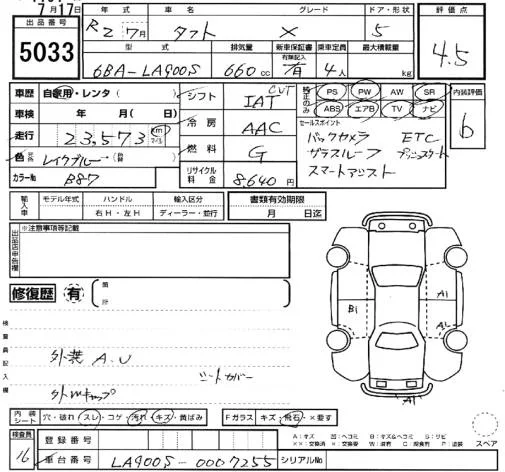 7月17日
出品番号 年式 車名 グレード ドア・形状 評価点
5033 R2 7月 タフト X 5 4.5
型式 排気量 新車保証書 乗車定員 最大積載量
有無記入
6BA-LA900S 660cc 有 4人 kg
車歴 自家用・レンタ( シフト CVT IAT PS PW AW SR 内装評価
純正のみ ABS エアB TV ナビ b
車検 年 月( 冷房 AAC セールスポイント
走行 23,573 km マイル バックカメラ ETC
色 レイクブルー( 燃料 G ガラスルーフ プッシュスタート
カラーNo B87 リサイクル料金 8,640円 スマートアシスト
輸入車 モデル年式 ハンドル 輸入区分 書類有効期限
右H・左H ディーラー・並行 月 日迄
出品店申告欄 ※注意事項等記載
修復歴 有 箇所
検査員記入欄
B1 A1
A1
外装 A.U
シートカバー
外Mキャップ
A1
内装シート 穴・破れ スレ・コゲ・汚れ キズ・黄ばみ Fガラス キズ・飛石・×要す
スペア
検査員 登録番号 A:キズ U:ヘコミ B:キズ&ヘコミ S:サビ
16 車台番号 LA900S-0007255 シリアルNo.